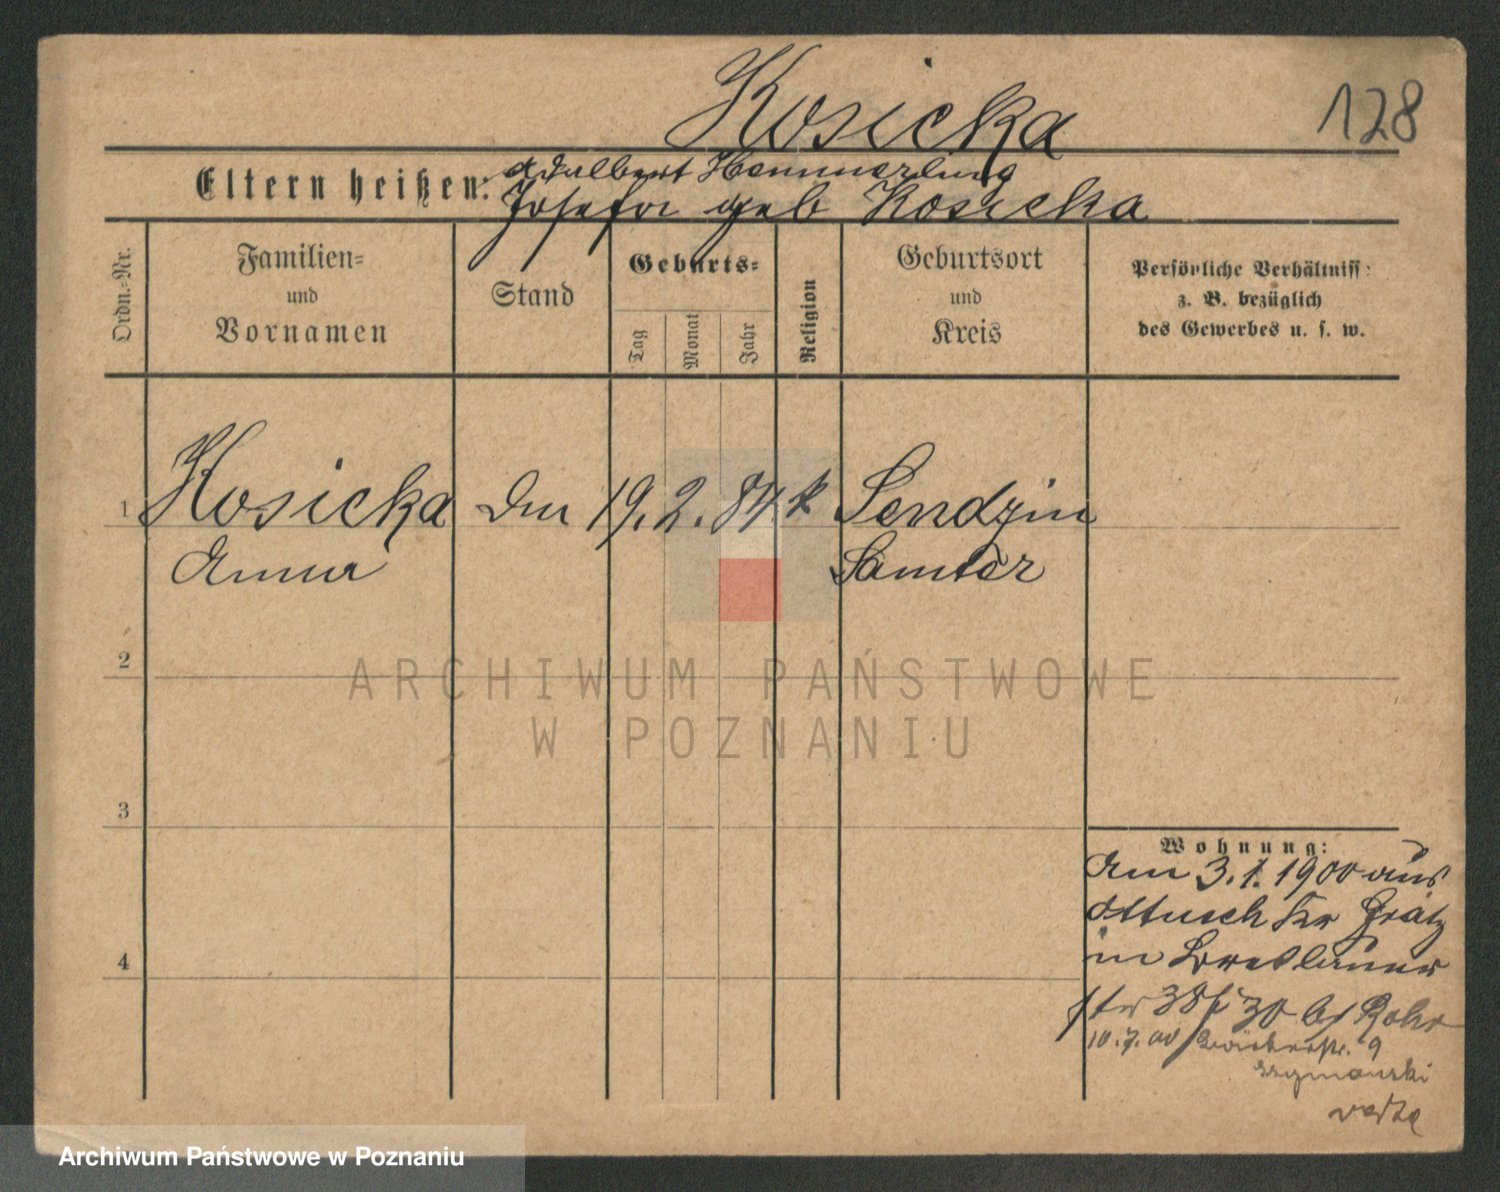 Kosicka
128
Eltern heißen: Adalbert Hemmerling
Josefa geb Kosicka
Ordn.-Nr.
Familien-
und
Vornamen
Stand
Geburts-
Tag
Monat
Jahr
Religion
Geburtsort
und
Kreis
Persönliche Verhältniss
z. B. bezüglich
des Gewerbes u. s. w.
1 Kosicka 19. 2. 84. k Sendzin
Anna Samter
2
3
4
Wohnung:
Am 3.1.1900 aus
Kr Grätz
in Breslauer
38 30 b/ Rohr
10.7. 9
Szymanski
ARCHIWUM PAŃSTWOWE
W POZNANIU
Archiwum Państwowe w Poznaniu